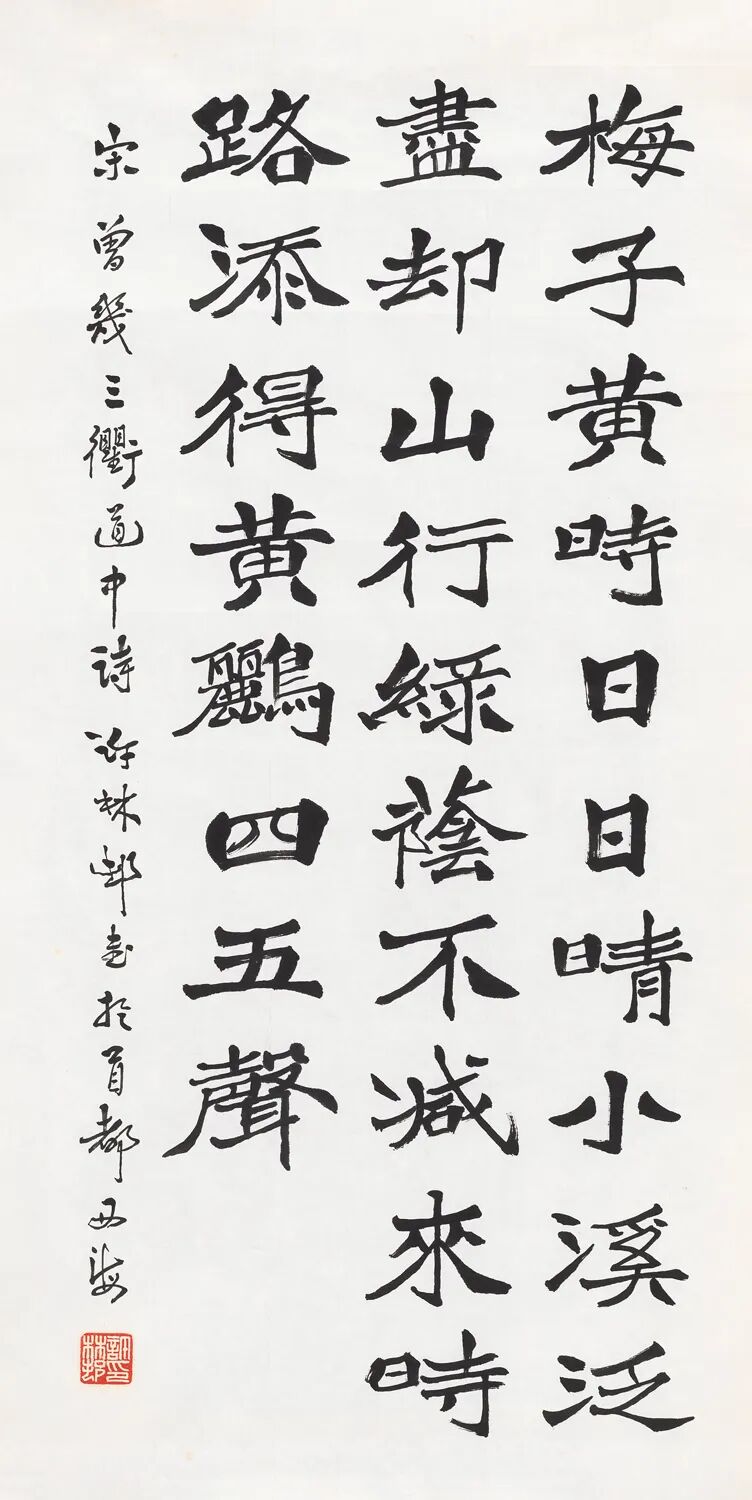 梅子黄時日日晴小溪泛
盡却山行綠蔭不減來時
路添得黄鸝四五聲
宋曾幾三衢道中詩許林邨書於首都西海
許林邨印